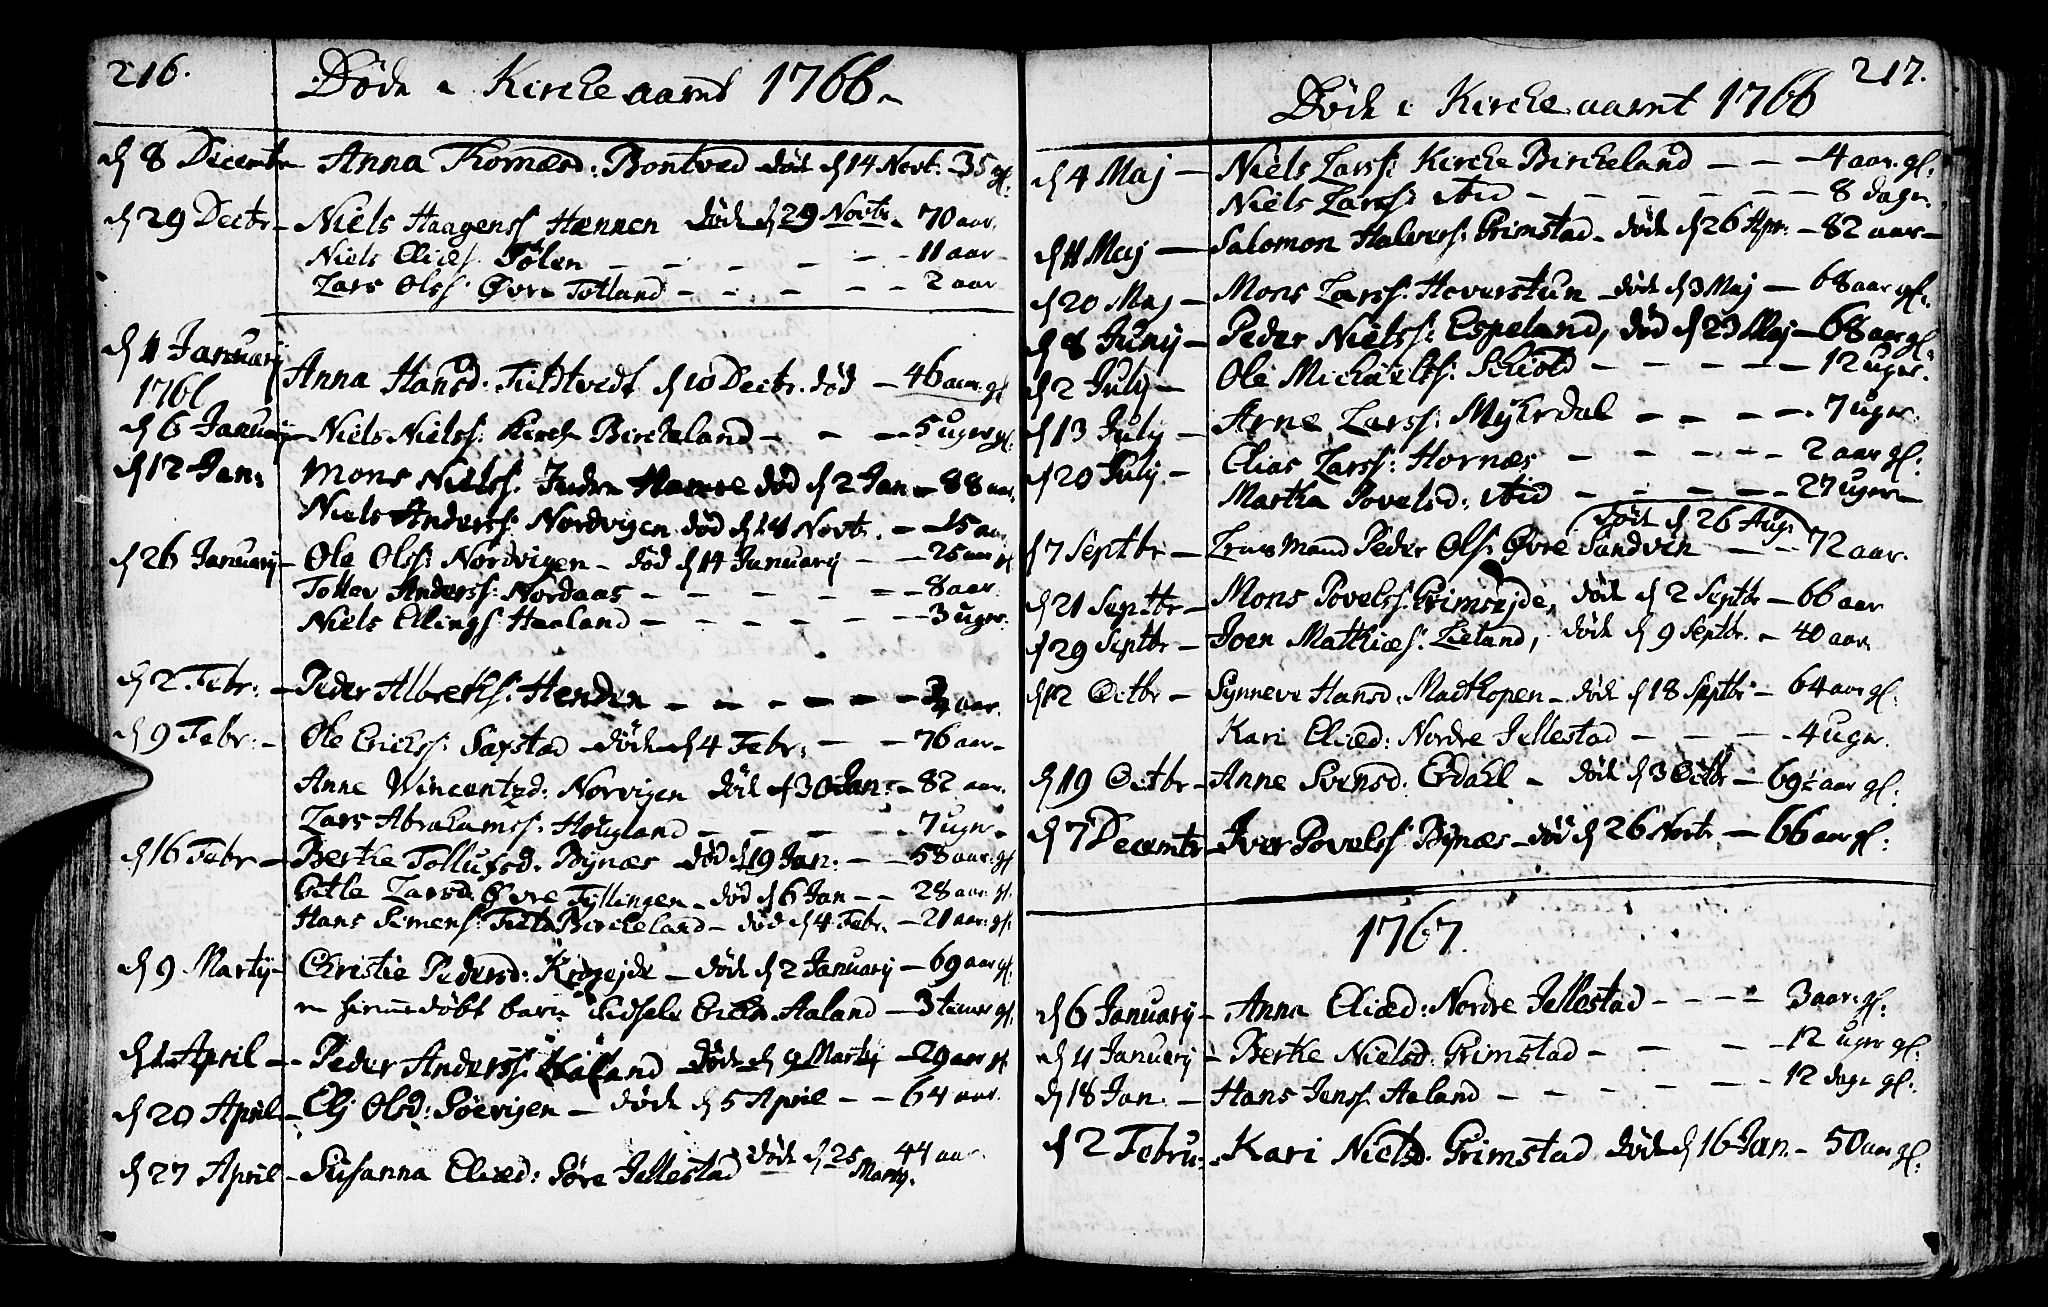 216.
Døde i Kirkeaaret 1766.
d 8 Decembr Anna Thomæsd: Bontved død d 14 Novt: 35 gl:
d 29 Decbr - Niels Haagenss Hannen døde d 29 Novbr. 70 aar.
Niels Eliæs: Tølen - - - - - 11 aar
Lars Olss: Øvre Totland - - - - 2 aar
d 1 January
1766 Anna Hansd: Tvedtvedt d 10 Decbr. død - 46 aar. gl
d 6 January - Niels Nielss: Kirke Birckeland - - - 5 uger gl:
d 12 Jan: Mons Nielss: Indre Hamre død d 2 Jan - 88 aar.
Niels Anderss: Nordvigen død d 18 Novbr. - 15 aar
d 26 January - Ole Olss: Nordvigen - død d 14 January - - 25 aar gl
Tollev Anderss: Nordaas - - - - - 8 aar.
Niels Ellings Haaland - - - - - 3 uger.
d 2 Febr: - Peder Albrektss: Henden - - - - - 3/4 aar.
d 9 Febr: - Ole Erickss: Saxstad - døde d 4 Febr: - - 76 aar -
Anne Wincentzd: Norvigen død d 30 Jan: - 82 aar.
Lars Abrahamss: Hougland - - - - 7 uger -
d 16 Febr - Berthe Tollufsd. Bynæs - død d 19 Jan: - - 58 aar. gl
Larsd: Øvre Tyllingen - død d 6 Jan - - 28 aar gl.
Hans Simens: Birckeland - død d 4 Febr. - 21 aar. gl
d 9 Martij - Christie Pedersd: - døde d 2 January - 69 aar gl.
en hiemmedøbt barn Sidsele Aaland - 3 timer gl
d 1 April - - Peder Anderss: døde d 9 Martij - 29 aar gl
d 20 April - Elj Olsd: Søevigen - døde d 5 April - - 64 aar.
d 27 April - Susanna Eliæd: Søre Jellestad døde d 25 Martij. 44 aar
217.
Døde i Kirckeaarnt 1766
d 4 Maj - Niels Larss: Kircke Birckeland - - - 4 aar. gl:
Niels Larss: ibid - - - - - - 8 dage.
d 11 Maj - Salomon Halvorss: Grimstad - døde d 26 Apr. - 82 aar -
d 20 Maj - Mons Larss: Hoverstun - døde d 3 Maj - 68 aar gl:
d 8 Junij - Peder Nielss: Espeland, død d 23 Maj - 68 aar gl:
d 2 July - Ole Michaelss: Schiold - - - - - 12 uger.
d 13 July - Arne Larss: Mykrdal - - - - 7 uger.
d 20 July - Elias Larss: Hornæs - - - - - 2 aar gl:
Martha Povelsd: ibid - - - - - 27 uger -
døde d 26 Aug:
d 7 Septbr - Mand Peder Ols: Øvre Sandvin - - 72 aar.
d 21 Septbr - Mons Povelss: Grimsejde, døde d 2 Septbr - 66 aar
d 29 Septbr - Joen Mathiæs: Lieland, døde d 9 Septbr. - 40 aar.
d 12 Octbr - Synneve Hansd: Madthopen - døde d 18 Septbr - 64 aar gl:
Kari Eliæd: Nordre Jellestad - - - - 4 uger.
d 19 Octbr - Anne Svensd: Erdahl - døde d 3 Octbr - 69½ aar gl:
d 7 Decembr - Iver Povelss: Bynæs - død d 26 Novbr - 66 aar gl:
1767.
d 6 January - Anna Eliæd: Nordre Jellestad - - - - 3 aar. gl:
d 11 January - Berthe Nielsd: Grimstad - - - - 12 uger gl:
d 18 Jan. - Hans Jenss: Aaland - - - - - 12 dage gl:
d 2 Febru: - Kari Nielsd: Grimstad døde d 16 Jan. - 50 aar gl: